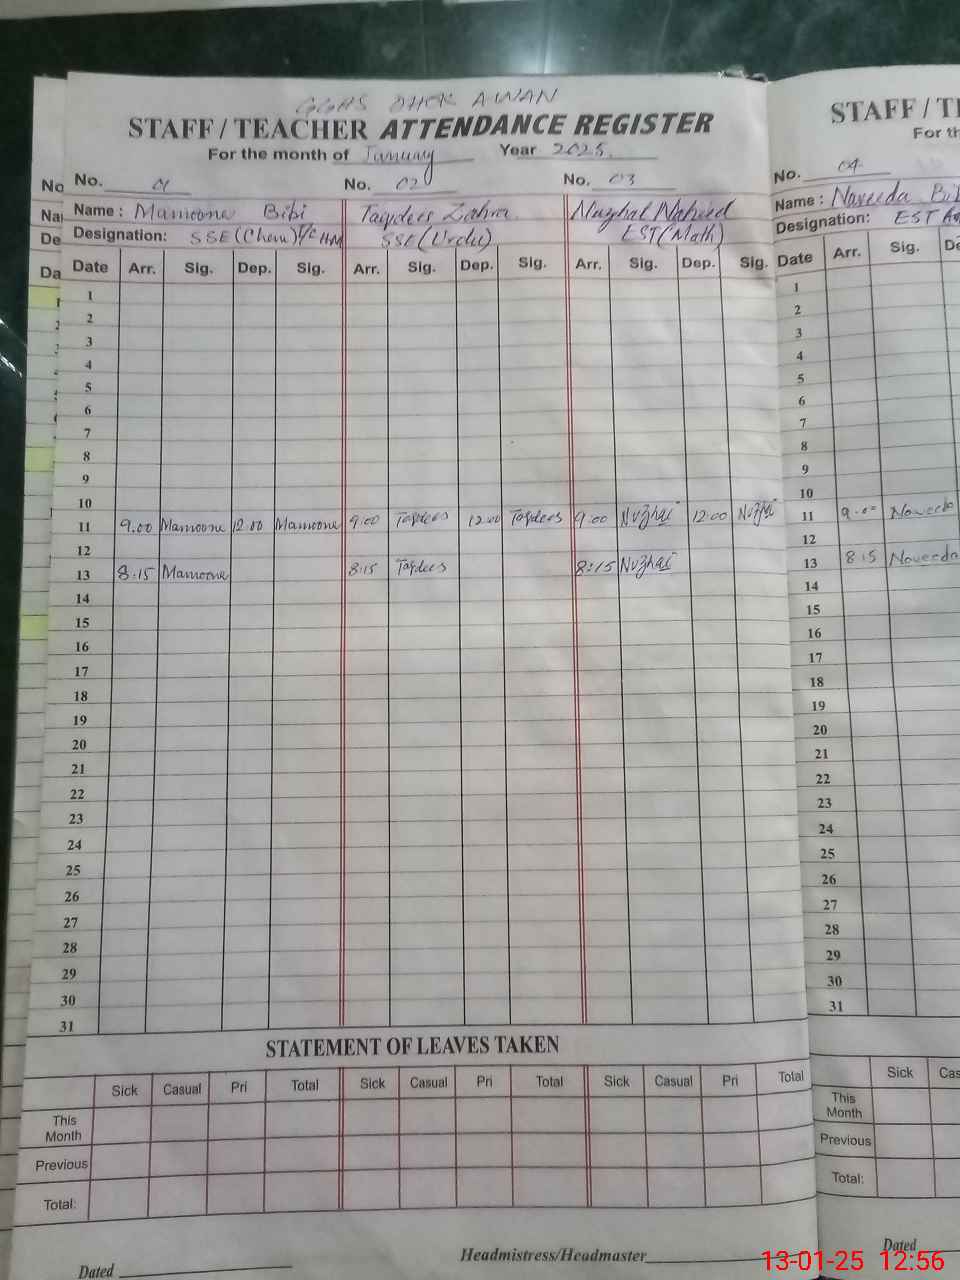 GGHS DHOK AWAN
STAFF / TEACHER ATTENDANCE REGISTER
For the month of January Year 2025.
No. 01 No. 02 No. 03
Name : Mamoona Bibi Taqdees Zahra Nuzhat Naheed
Designation: SSE (Chem) I/C HM SSE (Urdu) EST (Math)
Date Arr. Sig. Dep. Sig. Arr. Sig. Dep. Sig. Arr. Sig. Dep. Sig.
1
2
3
4
5
6
7
8
9
10
11 9.00 Mamoona 12.00 Mamoona 9:00 Taqdees 12:00 Taqdees 9:00 Nuzhat 12:00 Nuzhat
12
13 8:15 Mamoona 8:15 Taqdees 8:15 Nuzhat
14
15
16
17
18
19
20
21
22
23
24
25
26
27
28
29
30
31
STATEMENT OF LEAVES TAKEN
Sick Casual Pri Total Sick Casual Pri Total Sick Casual Pri Total
This Month
Previous
Total:
Dated Headmistress/Headmaster
STAFF / TE
For th
No. 04
Name : Naveeda Bi
Designation: EST
Date Arr. Sig. De
1
2
3
4
5
6
7
8
9
10
11 9.00 Naveeda
12
13 8:15 Naveeda
14
15
16
17
18
19
20
21
22
23
24
25
26
27
28
29
30
31
Sick Cas
This Month
Previous
Total:
Dated
No
Na
De
Da
13-01-25 12:56